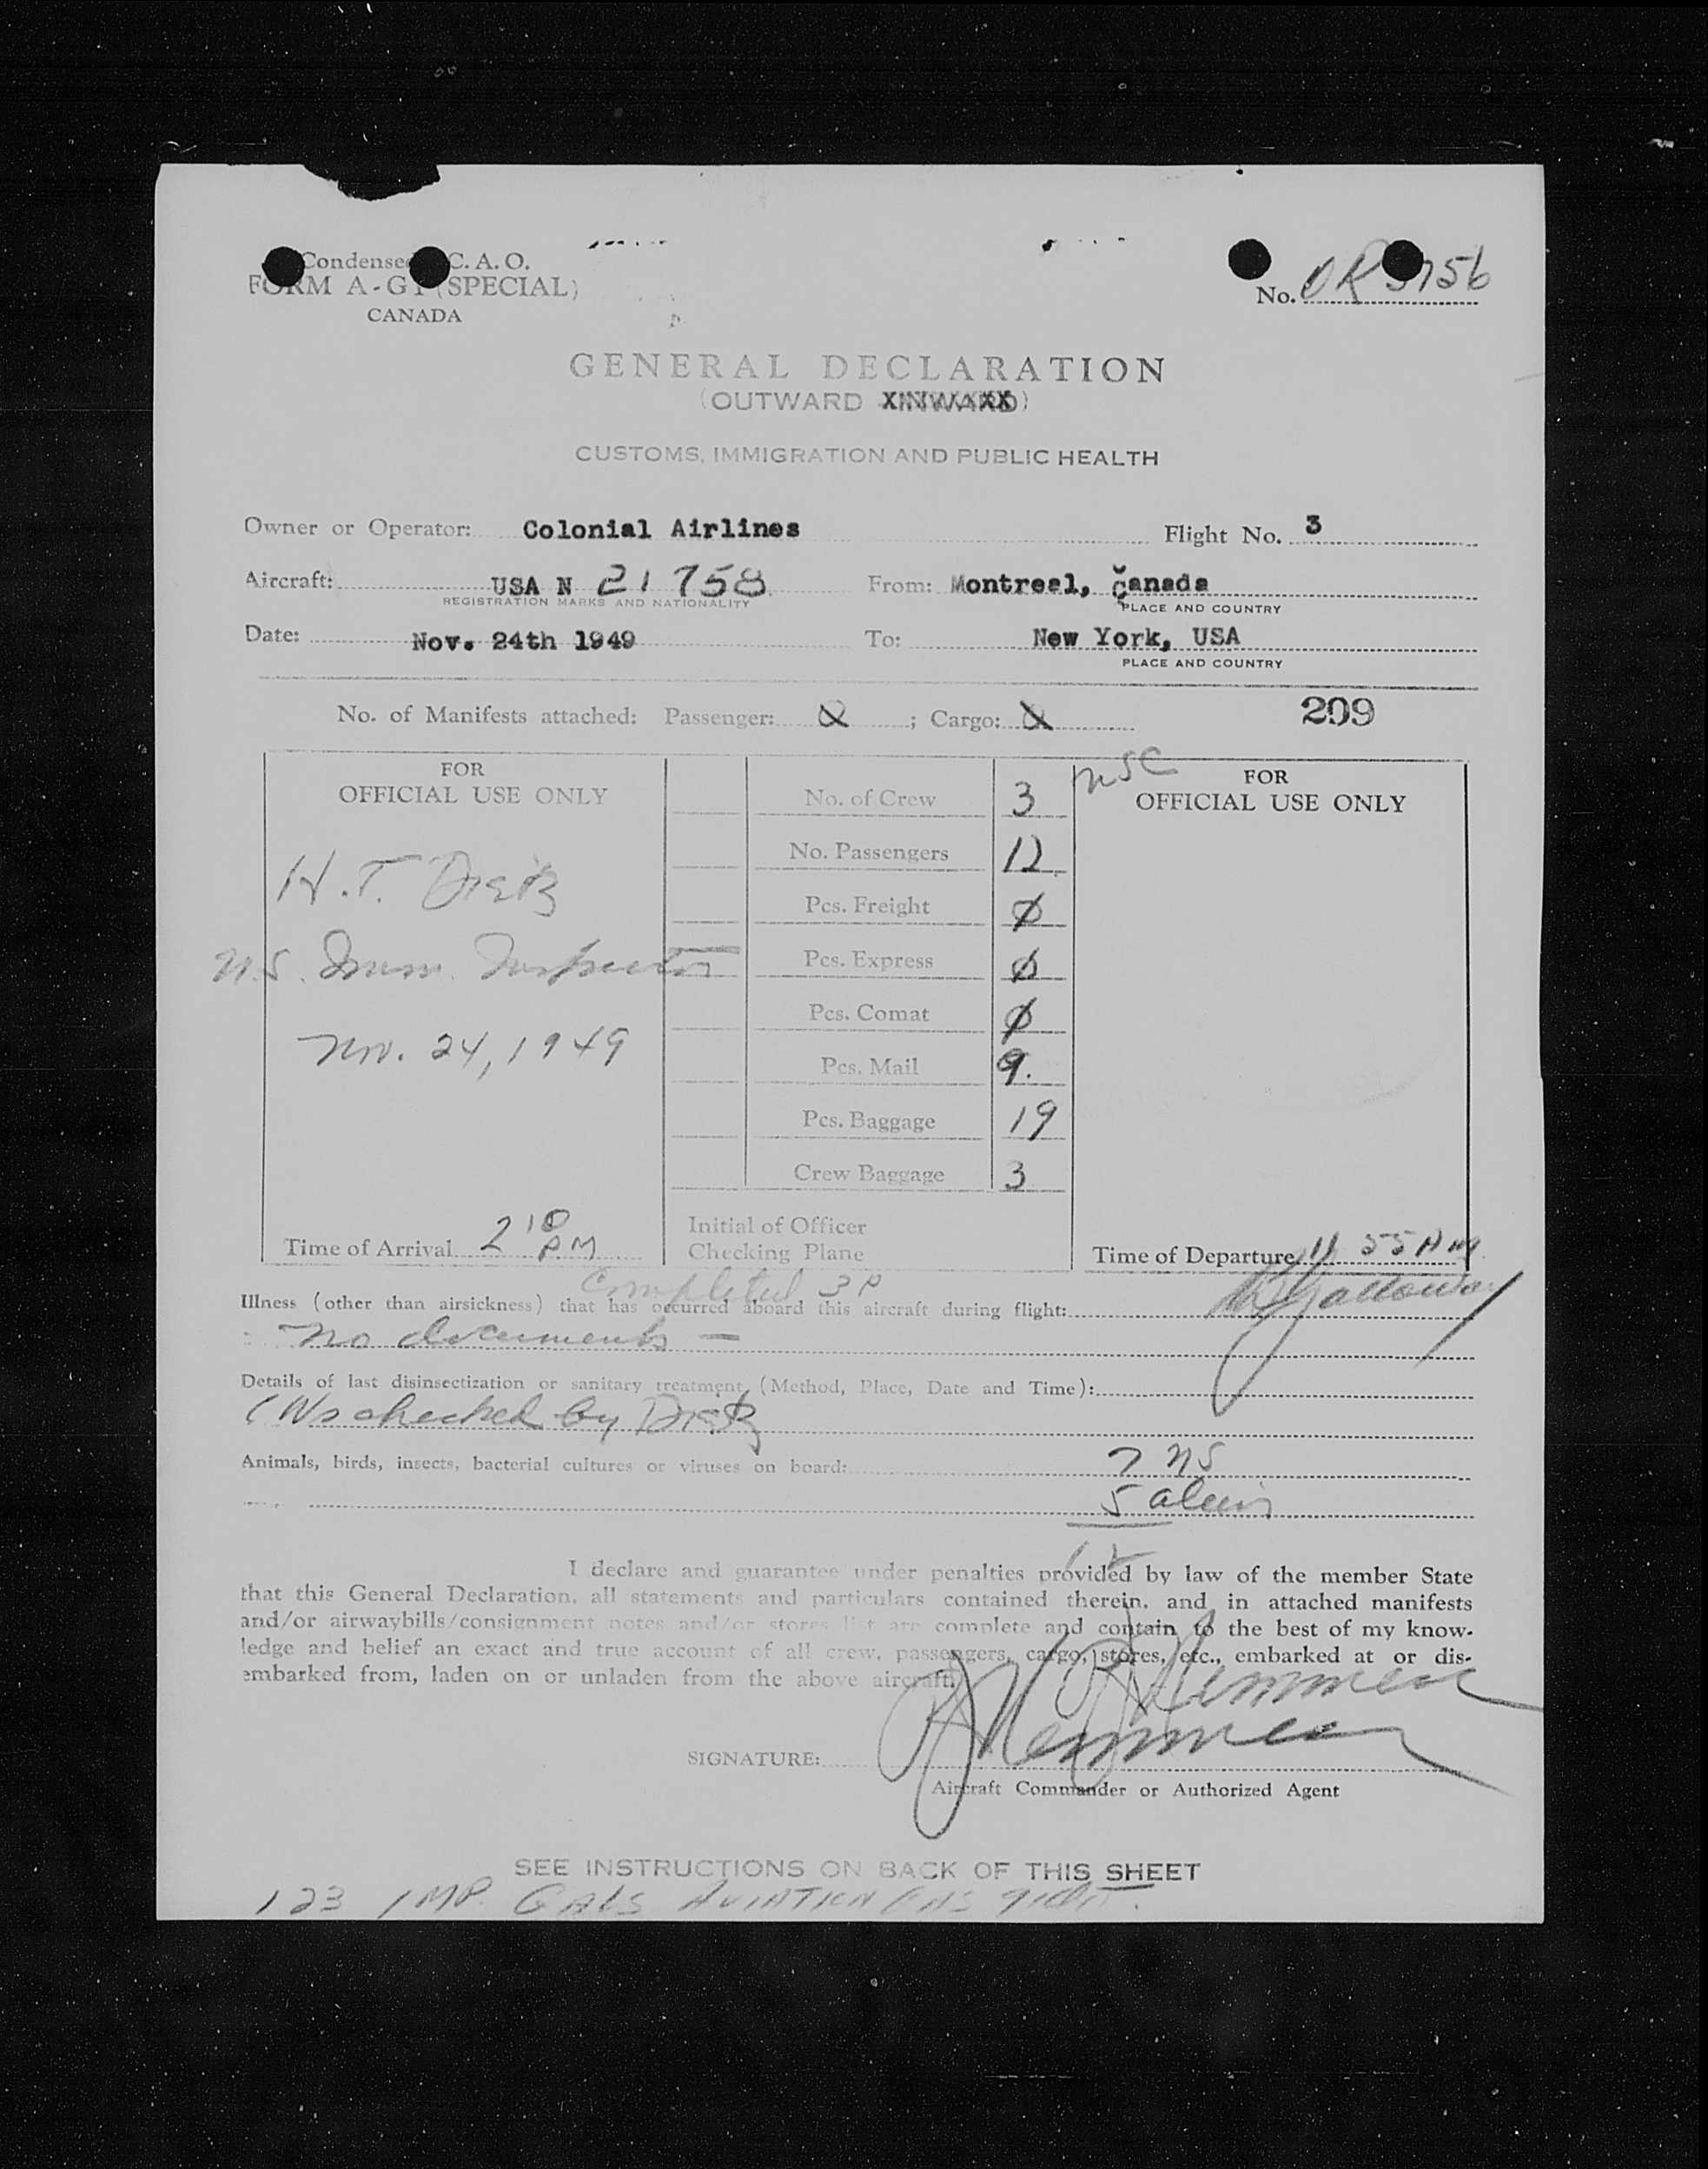 Condensed C.A.O.
FORM A-G1 (SPECIAL)
CANADA
No. OR 5756
GENERAL DECLARATION
(OUTWARD XINWARXX)
CUSTOMS, IMMIGRATION AND PUBLIC HEALTH
Owner or Operator: Colonial Airlines Flight No. 3
Aircraft: USA N 21758 From: Montreal, Canada
REGISTRATION MARKS AND NATIONALITY PLACE AND COUNTRY
Date: Nov. 24th 1949 To: New York, USA
PLACE AND COUNTRY
No. of Manifests attached: Passenger: ; Cargo: 209
FOR
OFFICIAL USE ONLY
H.T. Dietz
U.S. Imm. Inspector
Nov. 24, 1949
Time of Arrival 2 10 PM
No. of Crew 3
No. Passengers 12
Pcs. Freight Ø
Pcs. Express Ø
Pcs. Comat Ø
Pcs. Mail 9.
Pcs. Baggage 19
Crew Baggage 3
Initial of Officer
Checking Plane
FOR
OFFICIAL USE ONLY
Time of Departure 11 55 AM
Completed 3 P
Illness (other than airsickness) that has occurred aboard this aircraft during flight: Galloway
No documents —
Details of last disinsectization or sanitary treatment (Method, Place, Date and Time):
checked by Dietz
Animals, birds, insects, bacterial cultures or viruses on board: 7 US
5 aliens
12
I declare and guarantee under penalties provided by law of the member State
that this General Declaration, all statements and particulars contained therein, and in attached manifests
and/or airwaybills/consignment notes and/or stores list are complete and contain to the best of my know-
ledge and belief an exact and true account of all crew, passengers, cargo, stores, etc., embarked at or dis-
embarked from, laden on or unladen from the above aircraft.
SIGNATURE:
Aircraft Commander or Authorized Agent
SEE INSTRUCTIONS ON BACK OF THIS SHEET
123 IMP. GALS AVIATION GAS